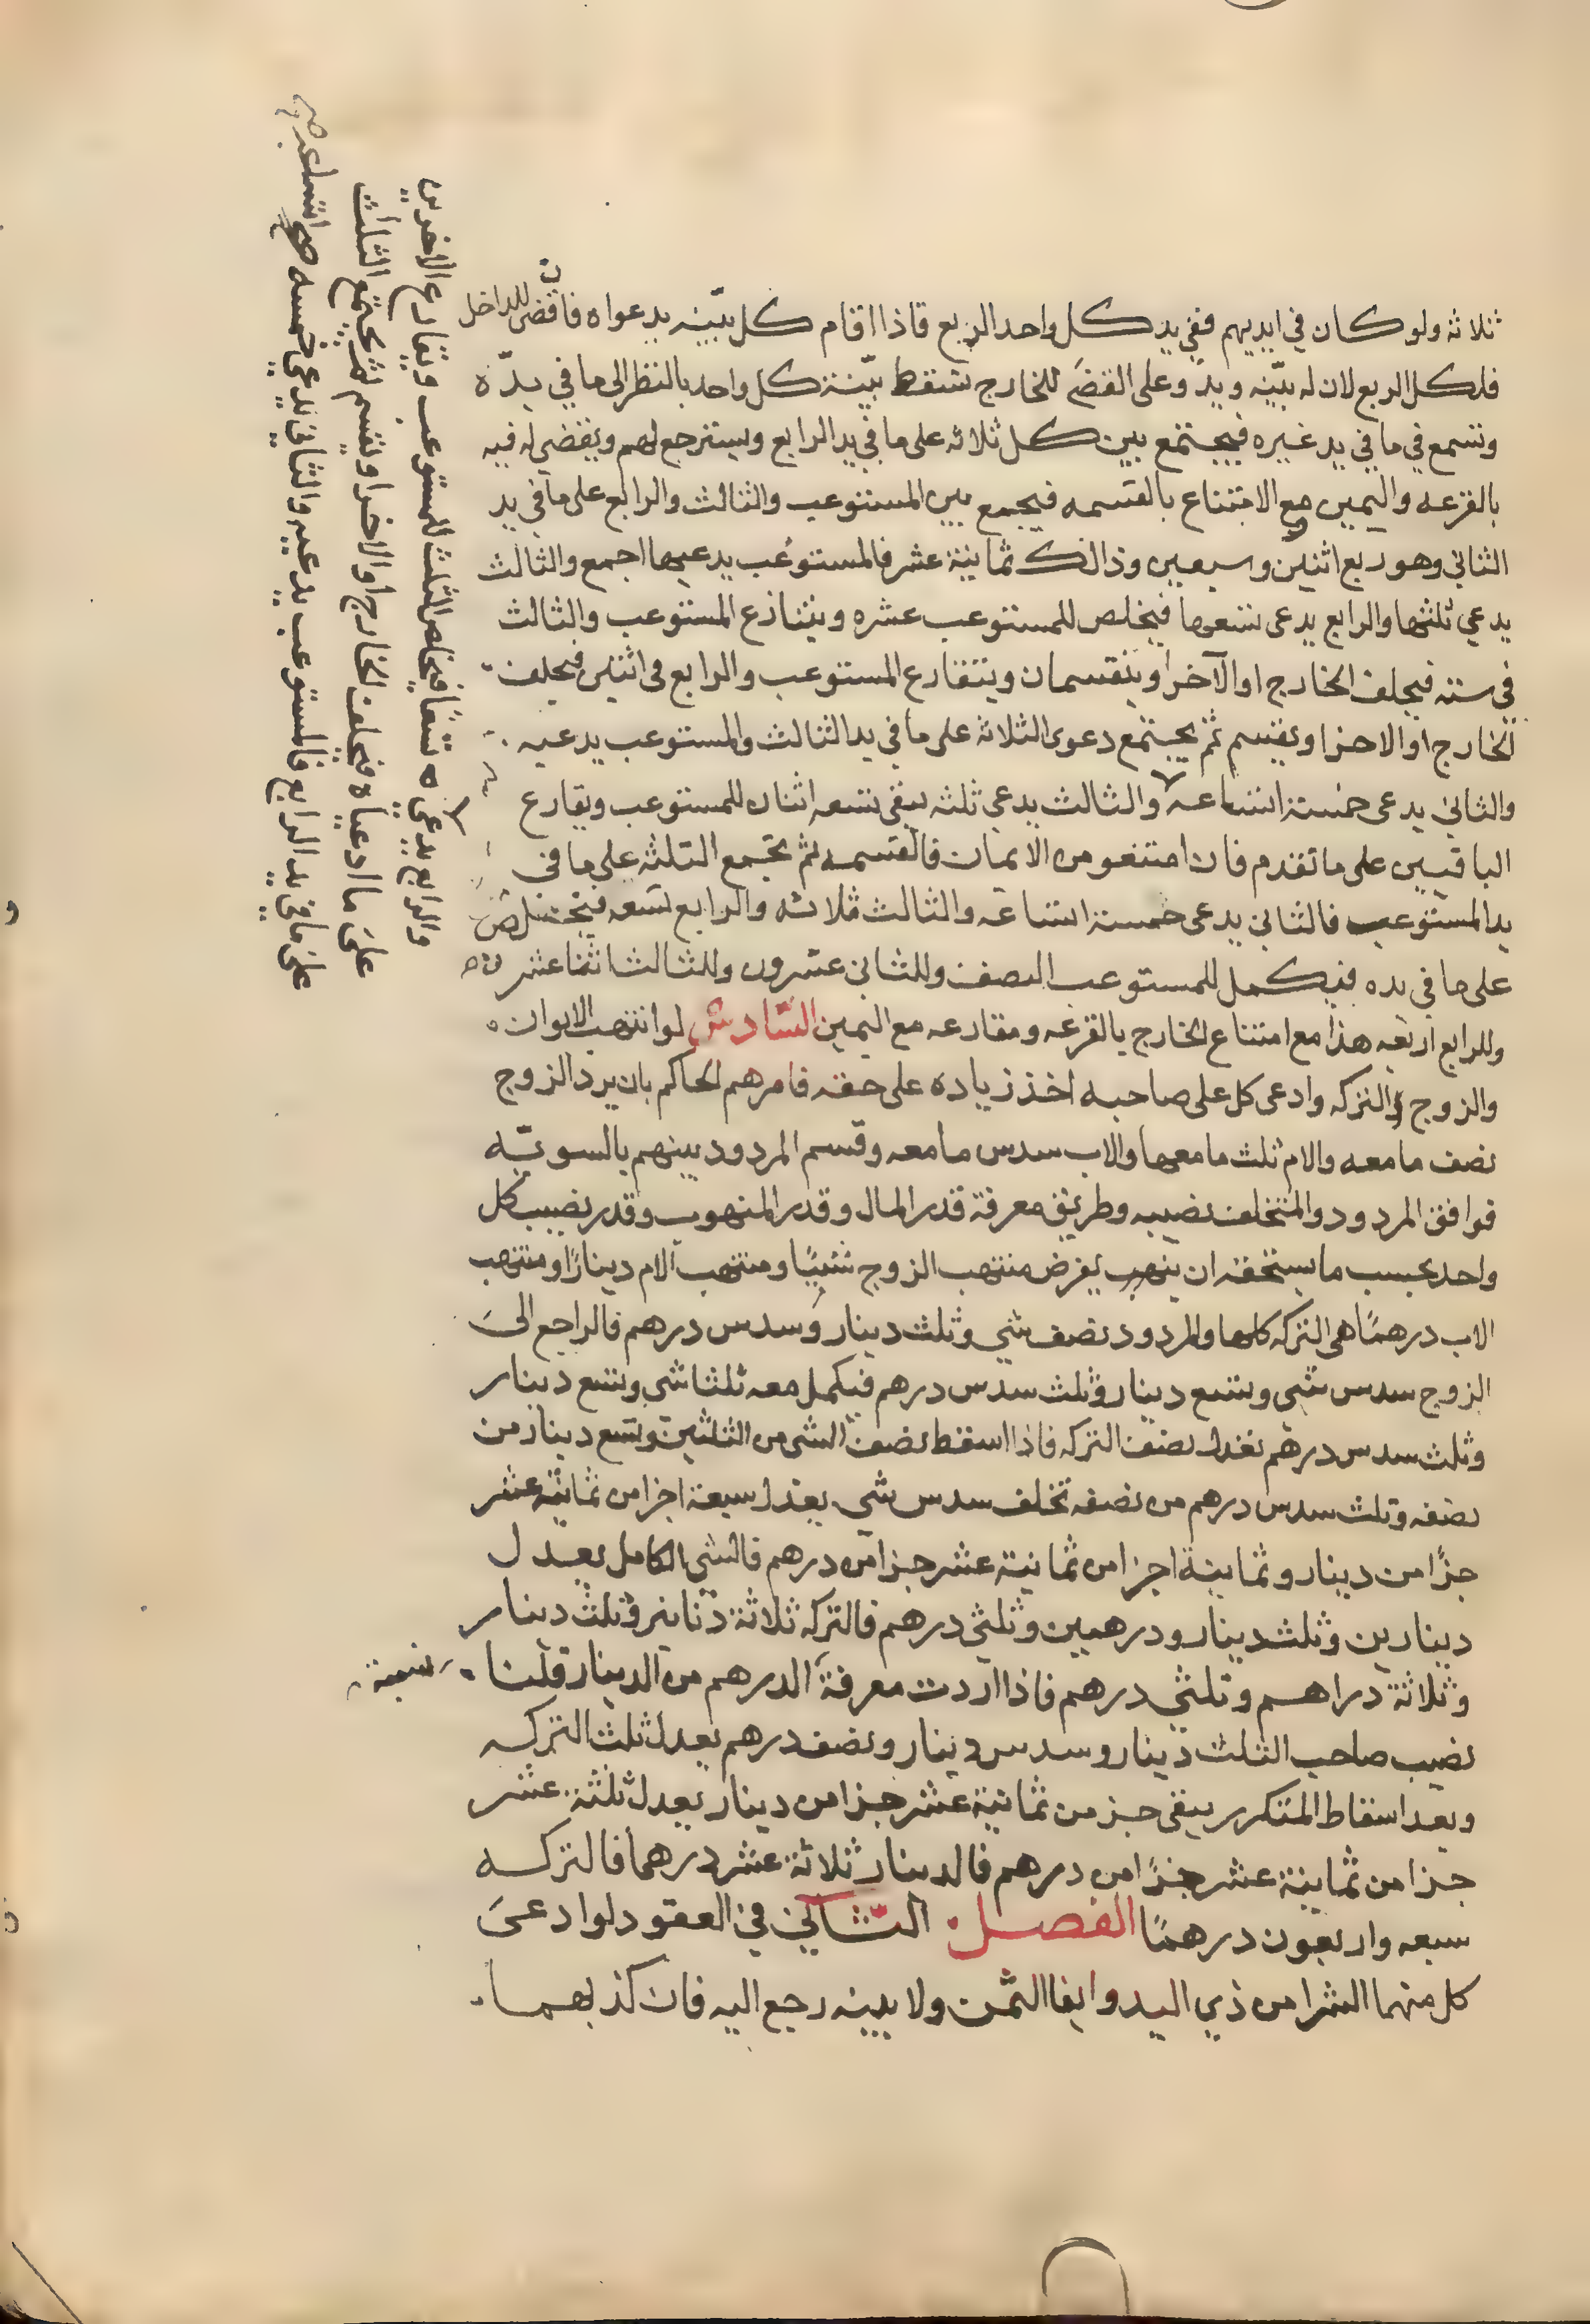 ثلاثه ولو كان في ايديهم ففي يد كل واحد الربع فاذا اقام كل بيّنه بدعواه فان قضى للداخل
فلكل الربع لان له بيّنه ويد وعلى القضَ للخارج تسقط بيّنة كل واحد بالنظر الى ما في يده
وتسمع في ما في يد غيره فيجتمع بين كل ثلاثه على ما في يد الرابع وينتزع لهم ويقضي له فيه
بالقرعه واليمين ومع الامتناع بالقسمه فيجمع بين المستوعب والثالث والرابع على ما في يد
الثاني وهو ربع اثنين وسبعين وذالك ثمانية عشر فالمستوعب يدعيها اجمع والثالث
يدعي ثلثها والرابع يدعى تسعها فيخلص للمستوعب عشره ويتنازع المستوعب والثالث
في سته فيحلف الخارج او الآخر او ينقسمان ويتقارع المستوعب والرابع في اثنين فيحلف
الخارج او الاخر او يقتسم ثم يجتمع دعوى الثلاثة على ما في يد الثالث والمستوعب يدعيه
والثاني يدعى خمسة اتساعه والثالث يدعي ثلثه يبقى تسعه اثنان للمستوعب ويقارع
الباقيين على ما تقدم فان امتنعو من الايمان فالقسمه ثم تجمع الثلثه على ما في
يد المستوعب فالثاني يدعى خمسة اتساعه والثالث ثلاثه والرابع تسعه فيخلص
على ما في يده فيكمل للمستوعب النصف وللثاني عشرون وللثالث اثنا عشر
وللرابع اربعه هذا مع امتناع الخارج بالقرعه ومقارعه مع اليمين السّادس لو انتهب الابوان
والزوج التركه وادعى كل على صاحبه اخذ زياده على حقه فامرهم الحاكم بان يرد الزوج
نصف ما معه والام ثلث ما معها والاب سدس ما معه وقسم المردود بينهم بالسويّه
فوافق المردود والمتخلف نصيبه وطريق معرفة قدر المال وقدر المنهوب وقدر نصيب كل
واحد بحسب ما يستحقه ان ينهب يفرض منتهب الزوج شيئًا ومنتهب الام دينارًا ومنتهب
الاب درهمًا هى التركه كلها والمردود نصف شي وثلث دينار وسدس درهم فالراجع الىَ
الزوج سدس شي وتسع دينار وثلث سدس درهم فيكمل معه ثلثا شي وتسع دينار
وثلث سدس درهم تعدل نصف التركه فاذا اسقط نصف الشي من الثلثين وتسع دينار من
نصفه وثلث سدس درهم من نصفه تخلف سدس شي يعدل سبعة اجزا من ثمانية عشر
جزًا من دينار وثمانية اجزا من ثمانية عشر جزا من درهم فالشي الكامل يعدل
دينارين وثلث دينار ودرهمين وثلثي درهم فالتركه ثلاثة دنانير وثلث دينار
وثلاثة دراهم وثلثي درهم فاذا اردت معرفة الدرهم من الدينار قلنا
نصيب صاحب الثلث دينار وسدس دينار ونصف درهم يعدل ثلث التركه
وبعد اسقاط المتكرر يبقى جز من ثمانية عشر جزا من دينار يعدل ثلثة عشر
جزا من ثمانية عشر جزًا من درهم فالدينار ثلاثة عشر درهما فالتركه
سبعه واربعون درهمًا الفصل الثاني في العقود لو ادعىَ
كل منهما الشرا من ذي اليد وايفا الثمن ولا بينه رجع اليه فان كذبهما
والرابع يدعي تسعًا فيخلص الثلث للمستوعب ويقارع الاخرين
على ما ادعياه فيحلف الخارج او الاخر او يقسم ثم يجتمع الثلث
على ما في يد الرابع فالمستوعب يدعيه والثاني يدعي خمسه اتساعه صح